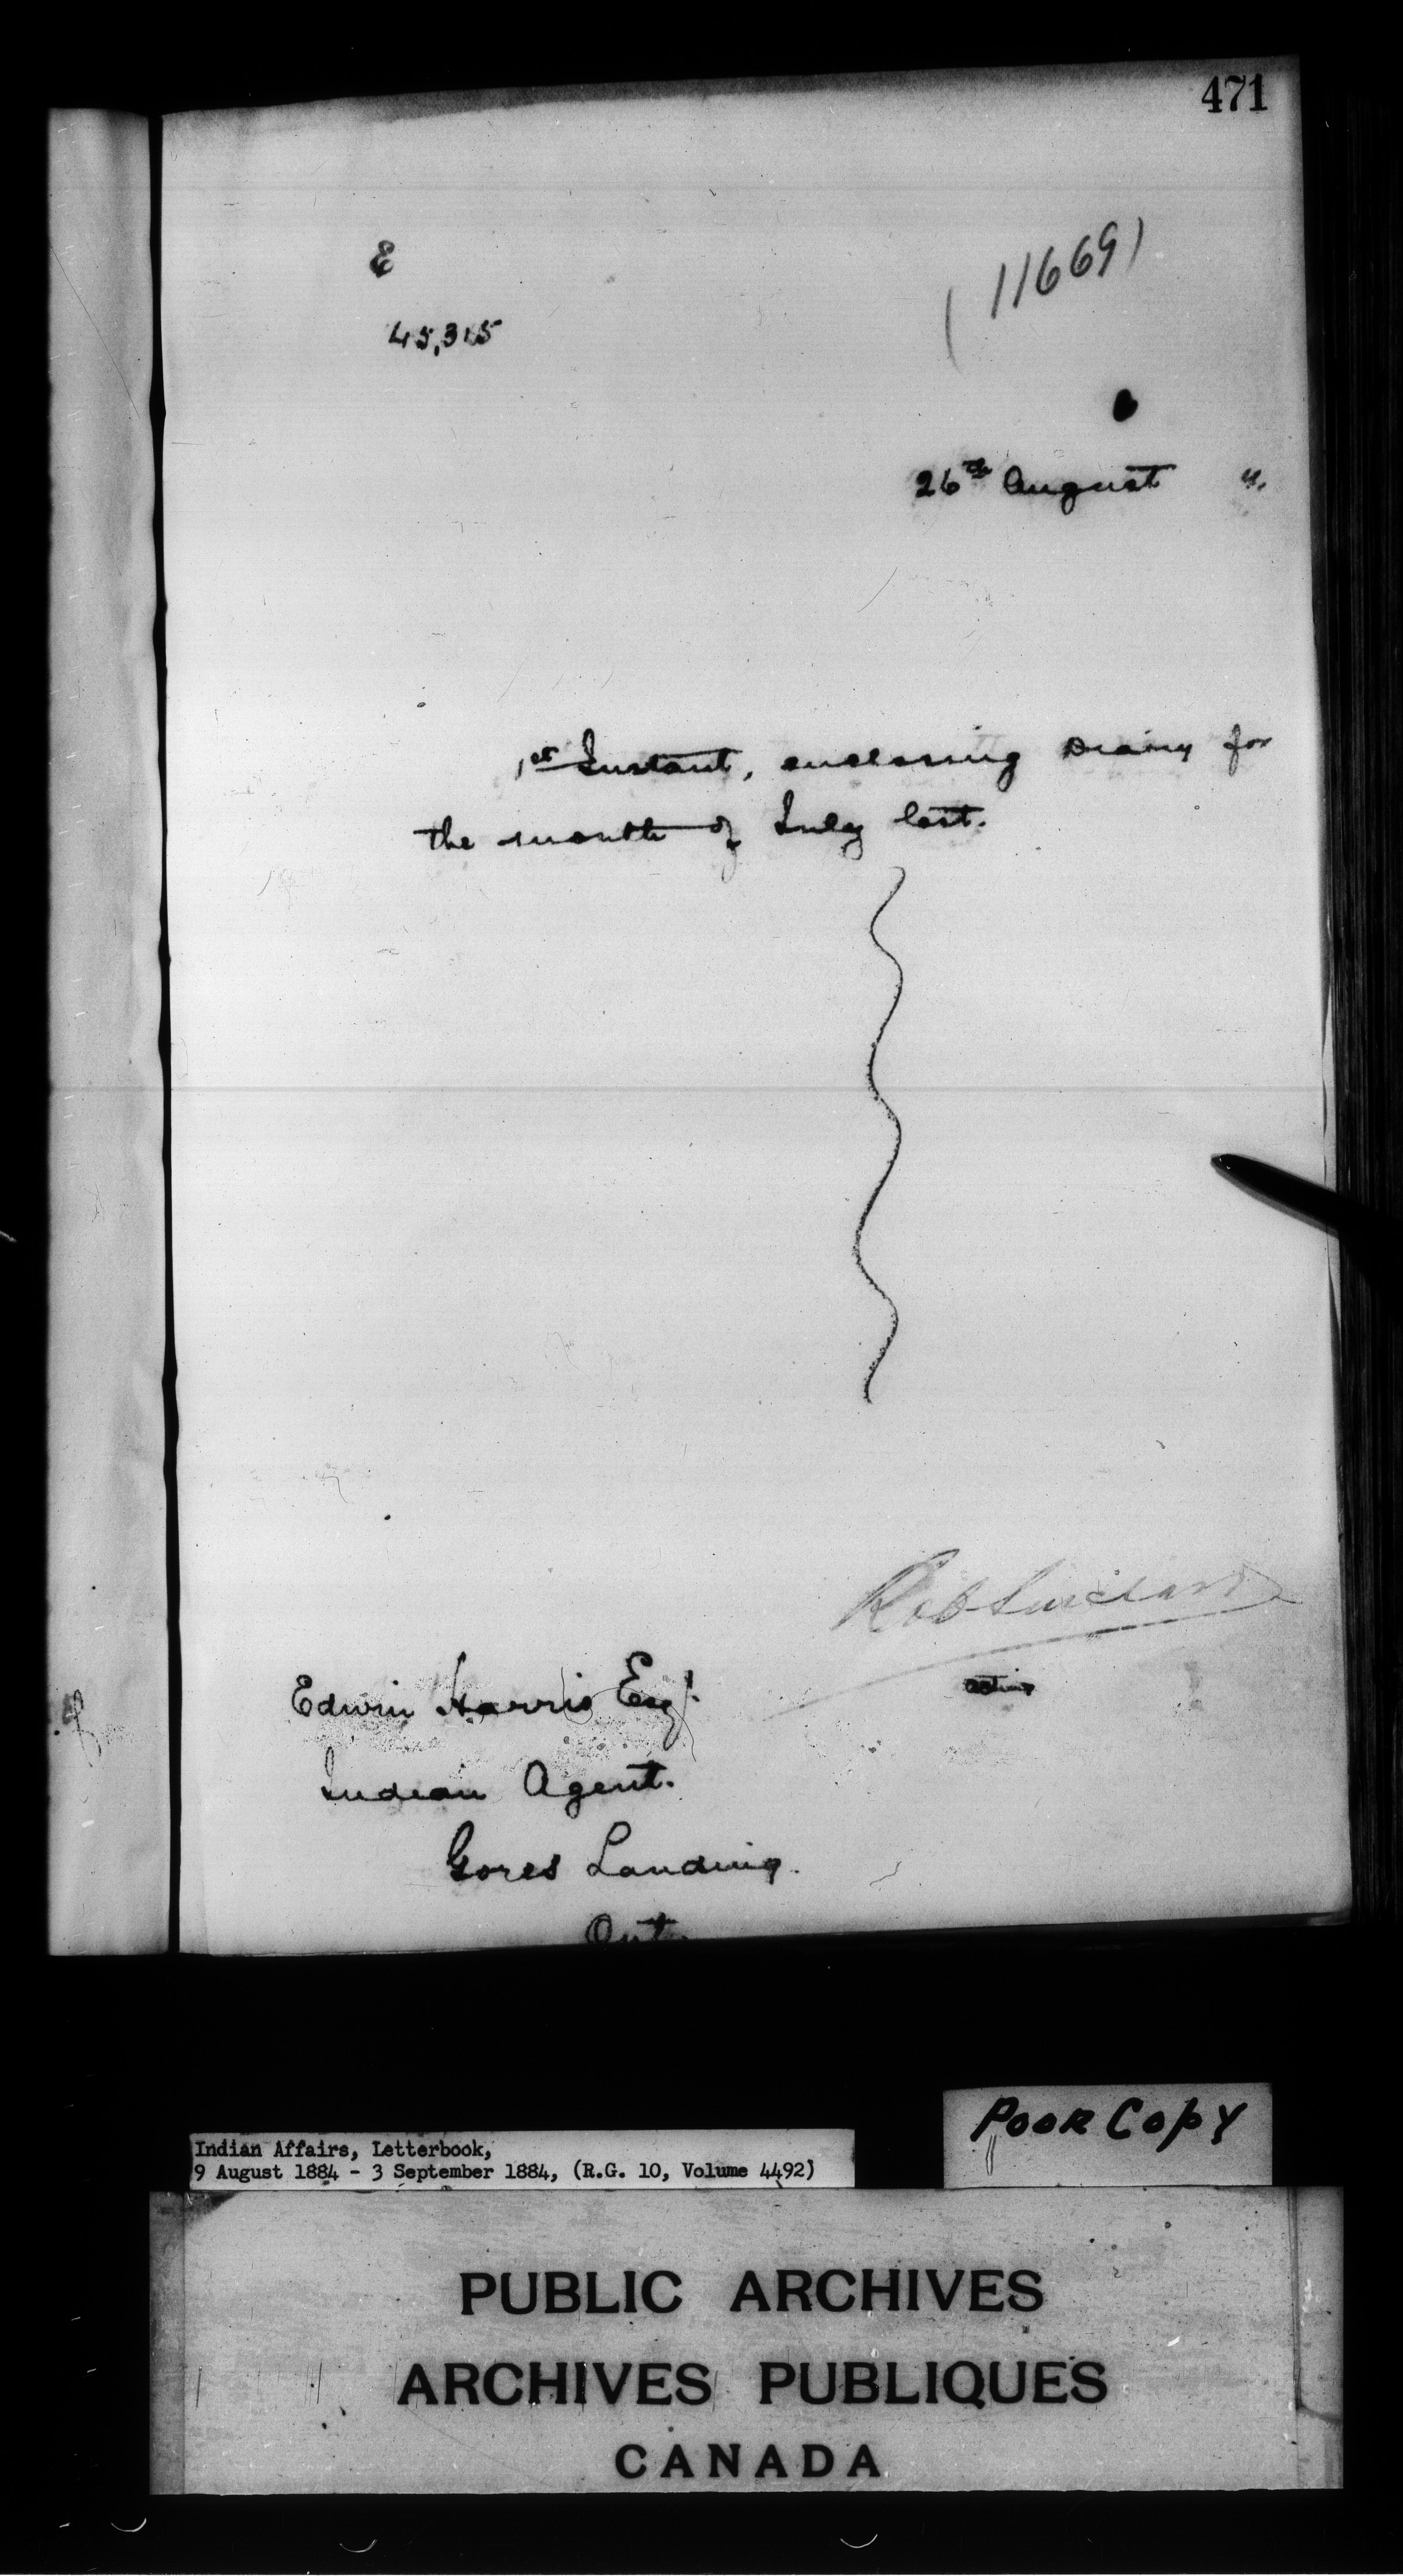 471
E
(11669)
45,315
26th August 4.
1st Instant, enclosing Diary for
the month of July last.
Robt Sinclair
acting
Edwin Harris Esq.
Indian Agent.
Gores Landing.
Ont.
Poor Copy
Indian Affairs, Letterbook,
9 August 1884 - 3 September 1884, (R.G. 10, Volume 4492)
PUBLIC ARCHIVES
ARCHIVES PUBLIQUES
CANADA